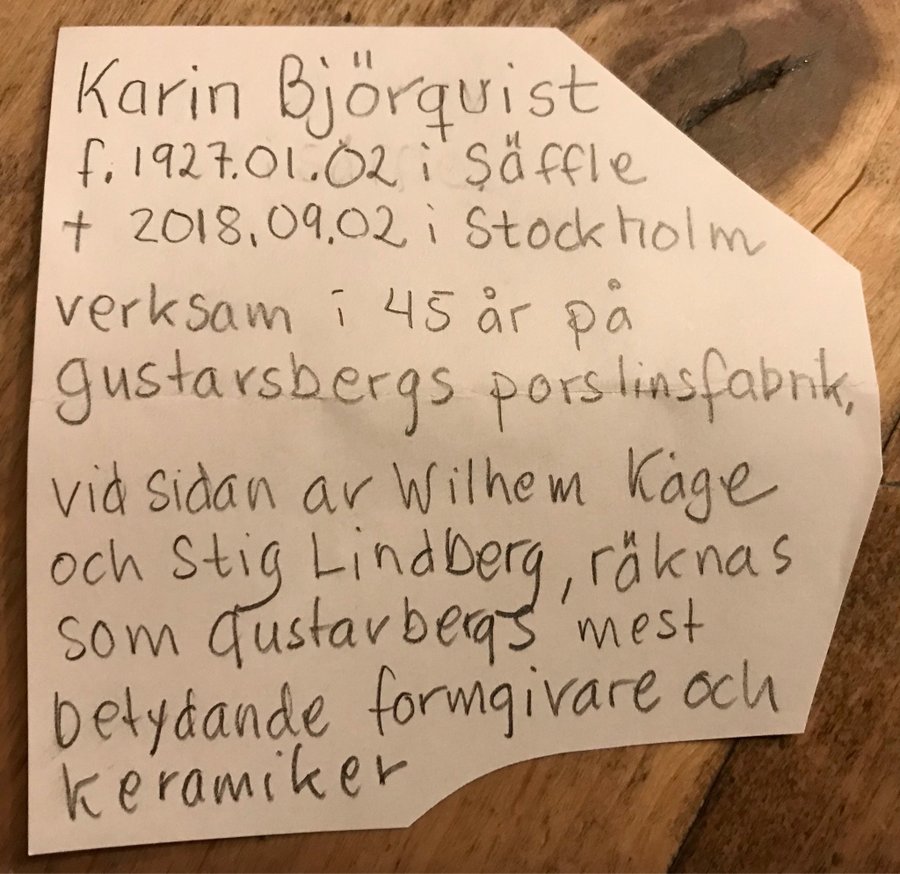 Karin Björquist
f. 1927.01.02 i Säffle
+ 2018.09.02 i Stockholm
verksam i 45 år på
gustavsbergs porslinsfabrik,
vid sidan av Wilhem Kåge
och Stig Lindberg, räknas
som gustavbergs mest
betydande formgivare och
keramiker